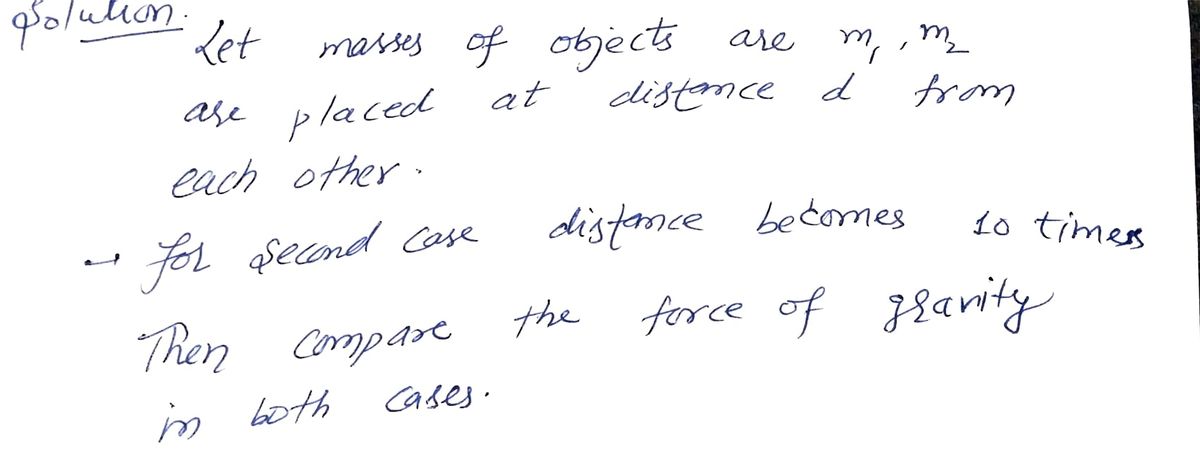 Solution.
Let masses of objects are m₁, m₂
are placed at distance d from
each other.
→ for second case distance becomes 10 times
Then compare the force of gravity
in both cases.